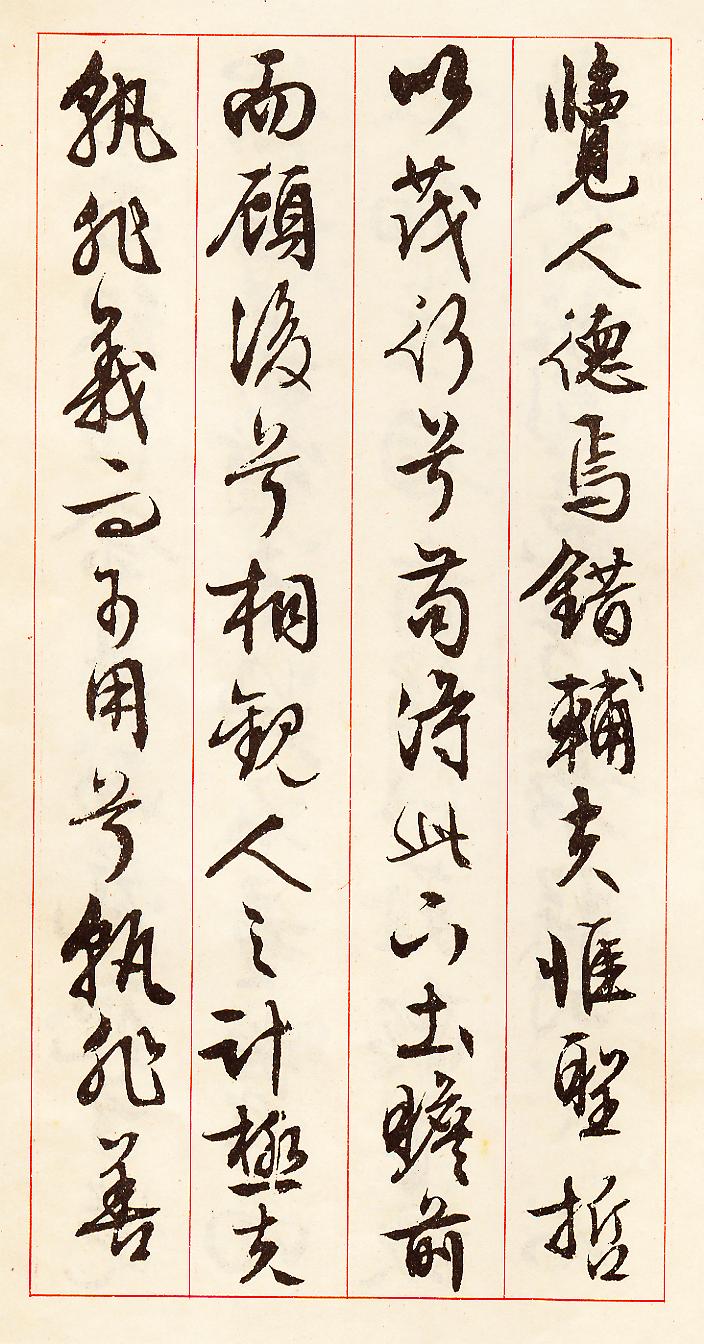 覽人德焉錯輔夫惟聖哲
以茂行兮苟得此下土瞻前
而顧後兮相觀人之計極夫
孰非義而可用兮孰非善